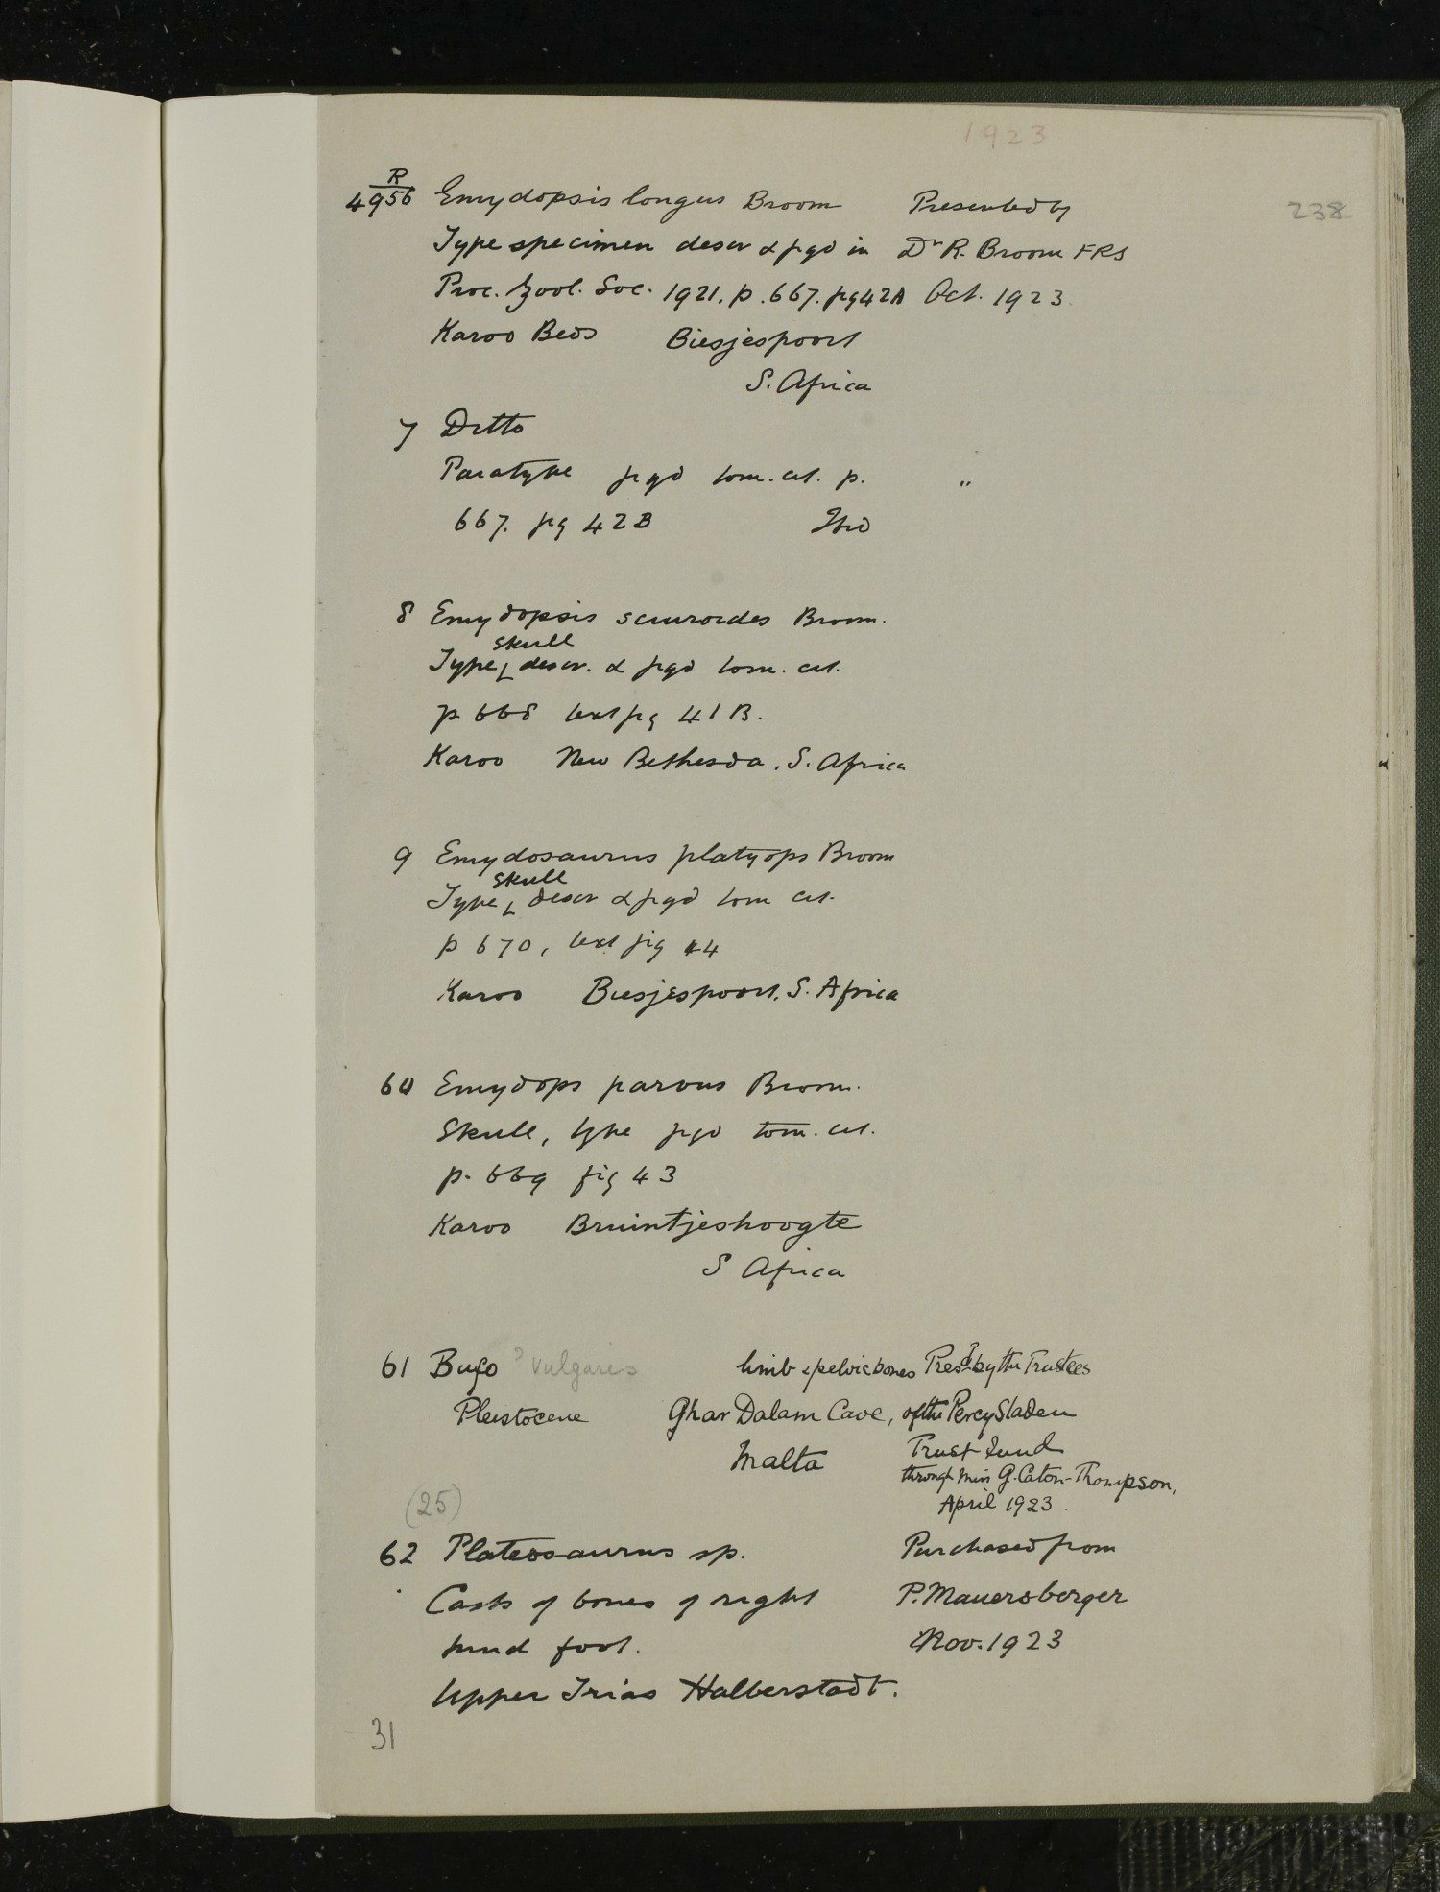 1923
238
R
4956 Emydopsis longus Broom Presented by
Type specimen descr & figd in Dr R. Broom FRS
Proc. Zool. Soc. 1921. p. 667. fig 42A Oct. 1923
Karoo Beds Biesjespoort
S. Africa
7 Ditto
Paratype figd tom. cit. p. "
667. fig 42B Ibid
8 Emydopsis sciuroides Broom.
skull
Type, descr. & figd tom. cit.
p 668 text fig 41B.
Karoo New Bethesda. S. Africa
9 Emydosaurus platyops Broom
skull
Type, descr & figd tom cit.
p 670, text fig 44
Karoo Biesjespoort, S. Africa
60 Emydops parvus Broom.
Skull, type figd tom. cit.
p. 669 fig 43
Karoo Bruintjeshoogte
S Africa
61 Bufo ? vulgaris limb & pelvic bones Presd by the Trustees
Pleistocene Ghar Dalam Cave, of the Percy Sladen
Malta Trust Fund
through Miss G. Caton-Thompson,
April 1923
(25)
62 Plateosaurus sp. Purchased from
Casts of bones of right P. Mauersberger
hind foot. Nov. 1923
Upper Trias Halberstadt.
31